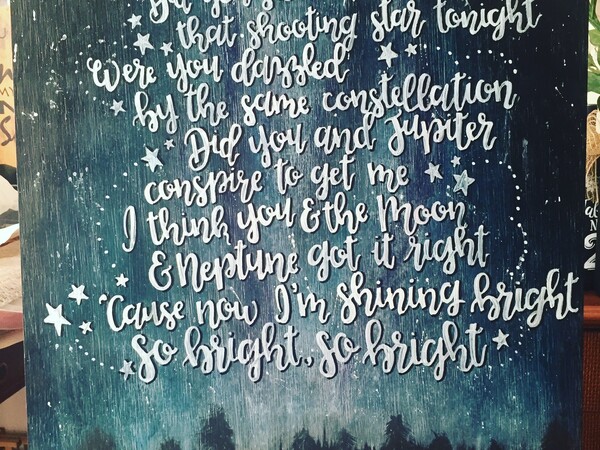 that shooting star tonight
Were you dazzled
by the same constellation
Did you and Jupiter
conspire to get me
I think you & the Moon
& Neptune got it right
'Cause now I'm shining bright
So bright, So bright